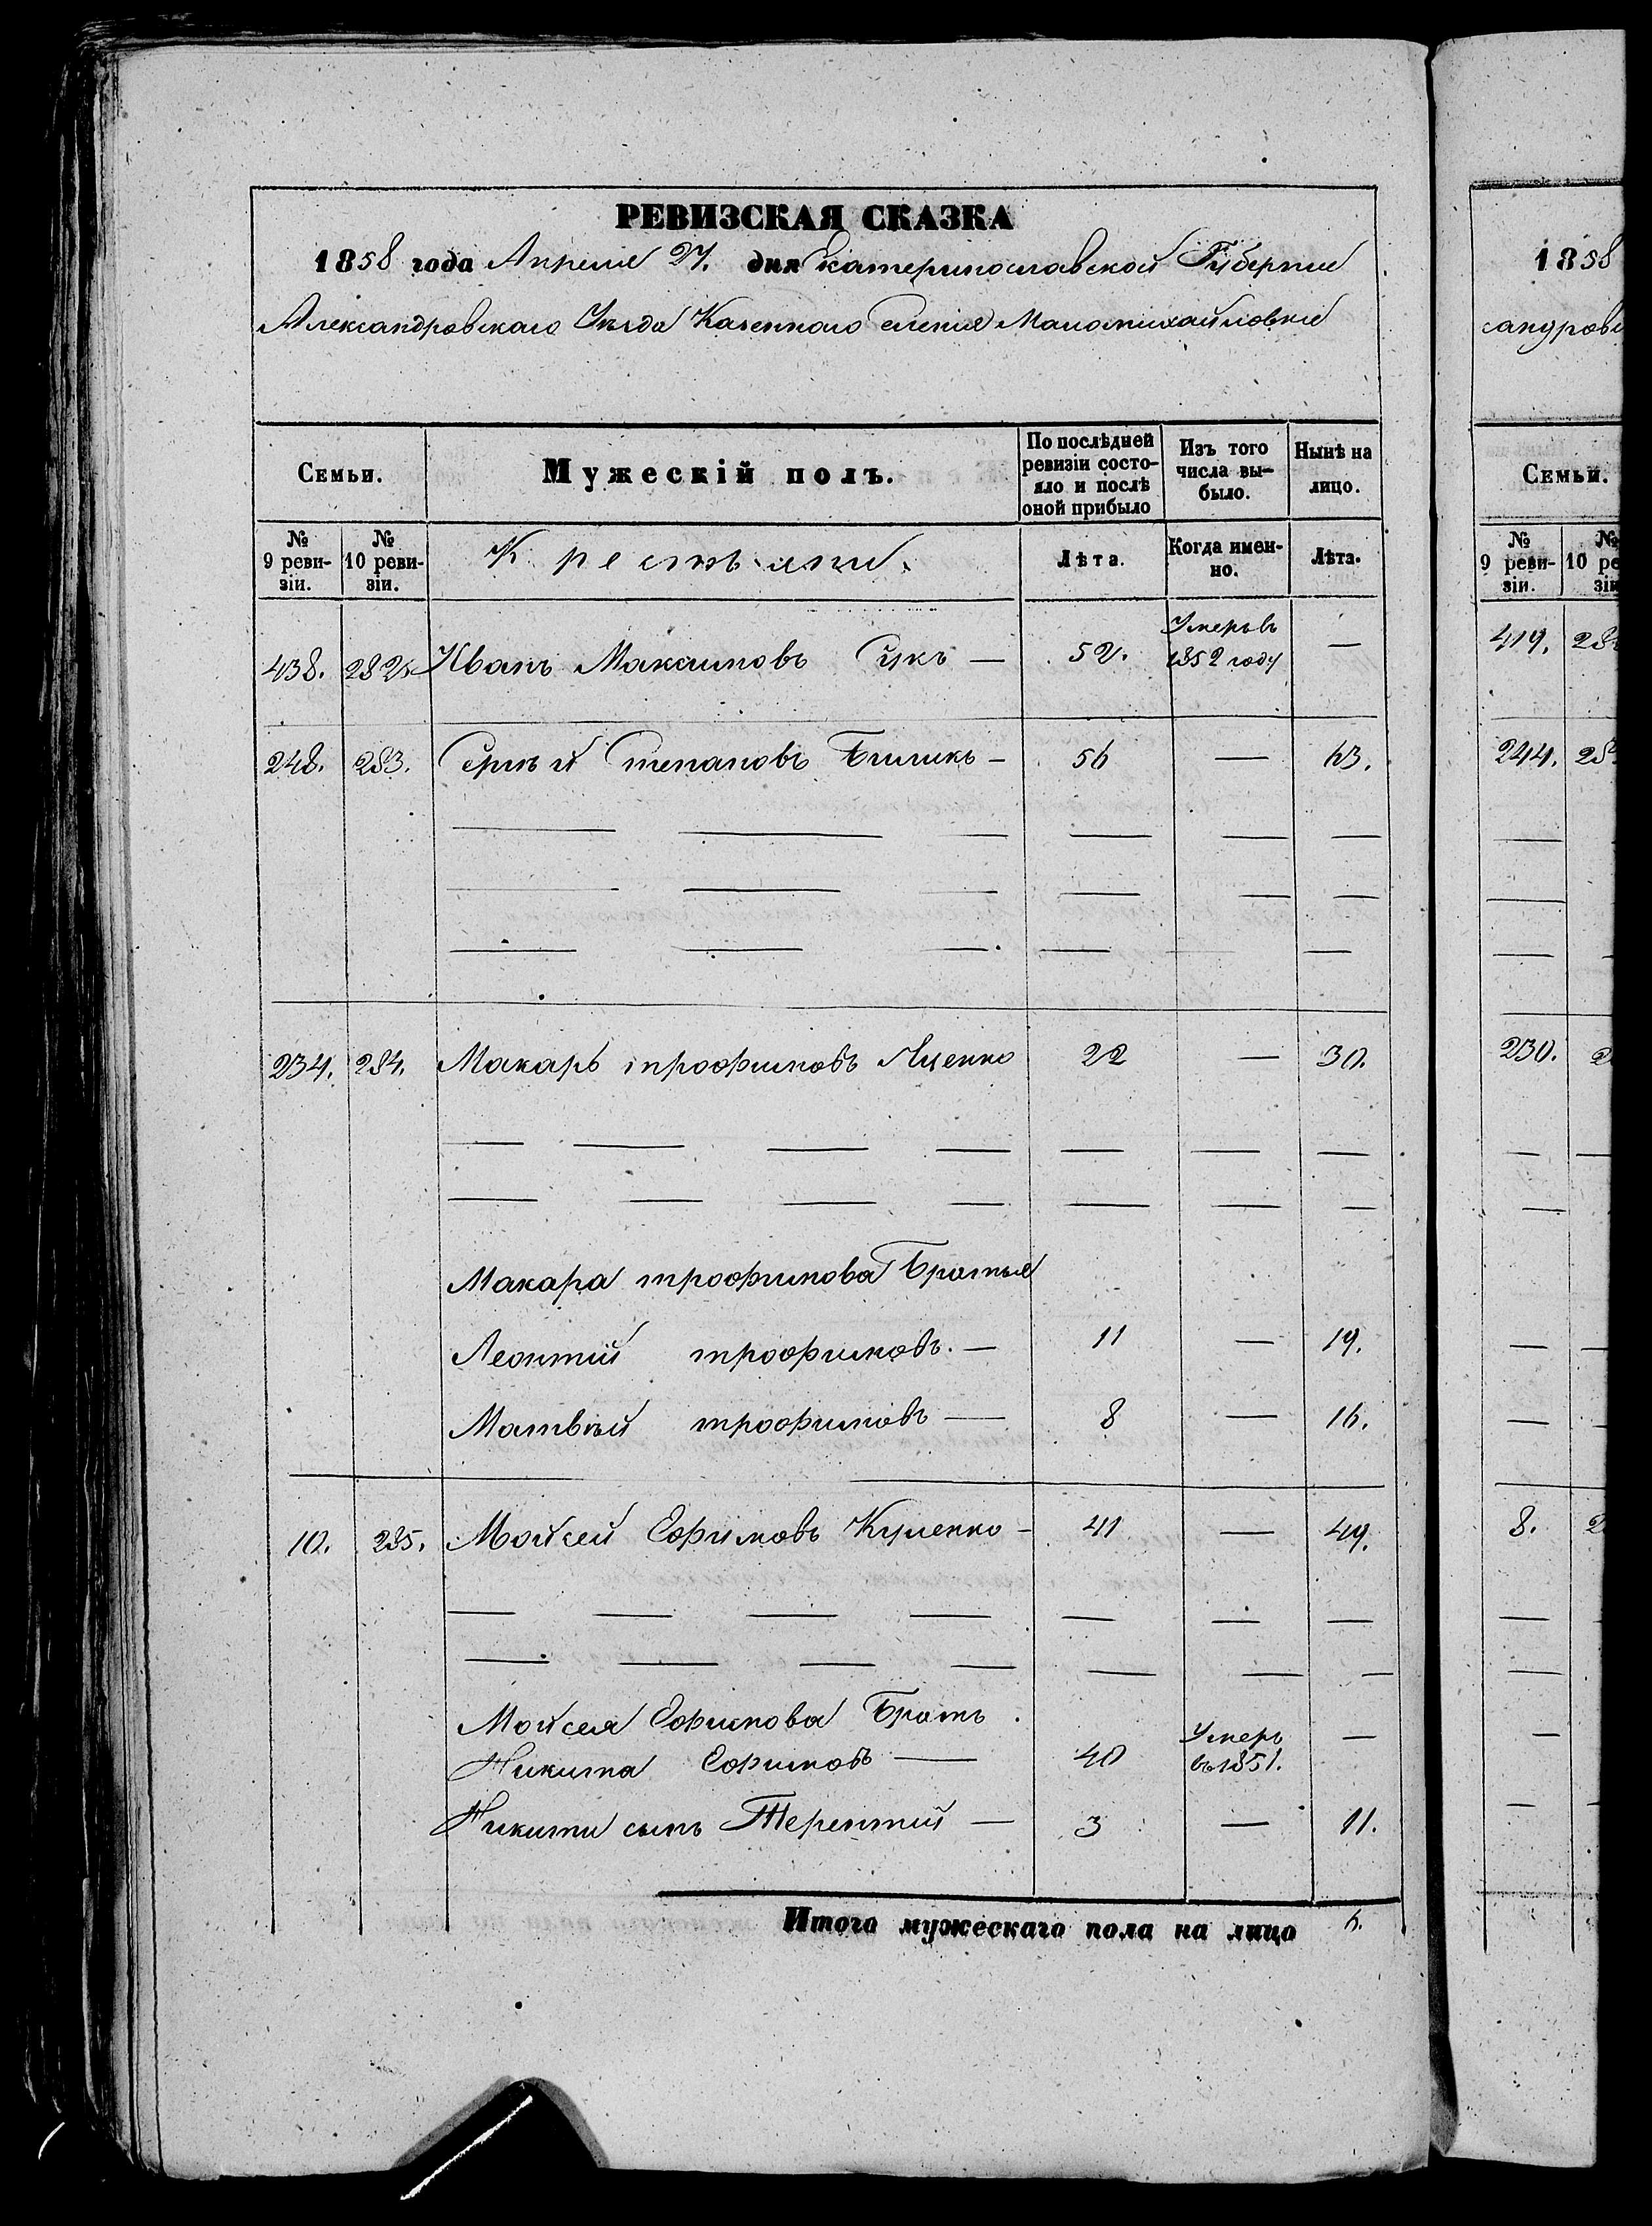 РЕВИЗСКАЯ СКАЗКА
1858 года Апреля 27. дня Екатеринославской Губернии
Александровскаго Уезда Казеннаго селения Маломихайловки
Семьи.
Мужескій полъ.
По послѣдней ревизіи состояло и послѣ оной прибыло
Изъ того числа выбыло.
Нынѣ на лицо.
№ 9 ревизіи.
№ 10 ревизіи.
Крестьяни.
Лѣта.
Когда именно.
Лѣта.
438. 282. Иванъ Максимовъ — 52. Умеръ въ 1852 году —
248. 283. Сергѣй Степановъ Биликъ — 56 — 63.
234. 284. Макаръ трофимовъ Яценко 22 — 30.
Макара трофимова Братья
Леонтій трофимовъ. — 11 — 19.
Матвѣй трофимовъ — 8 — 16.
10. 285. Мойсей Ефимовъ — 41 — 49.
Мойсея Ефимова Братъ
Никита Ефимовъ — 40 Умеръ въ 1851. —
Никиты сынъ Терентий — 3 — 11.
Итого мужескаго пола на лицо 6.
1858
сандровс
Семьи.
№ 9 ревизіи.
№ 10 ре зіи
419. 28
244. 28
230. 2
8. 2